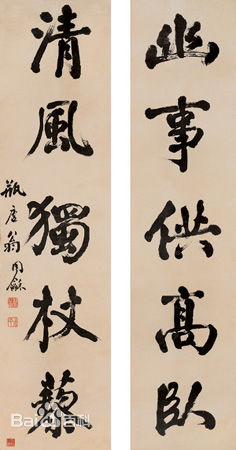 幽事供髙臥
清風獨杖藜
瓶廬翁同龢
Bai百科